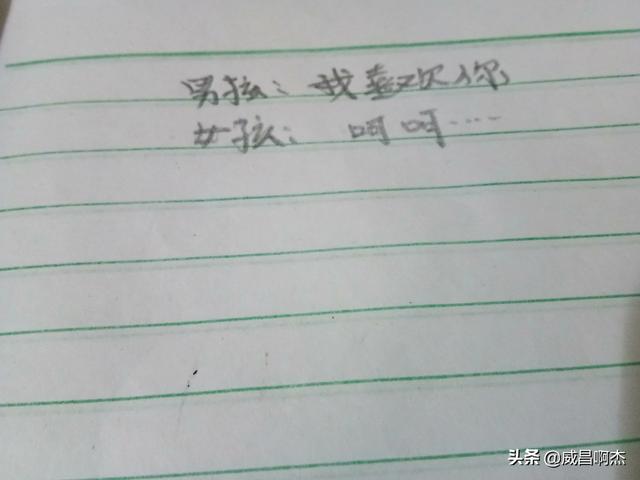 男孩：我喜欢你
女孩：呵呵……
头条 @威昌啊杰